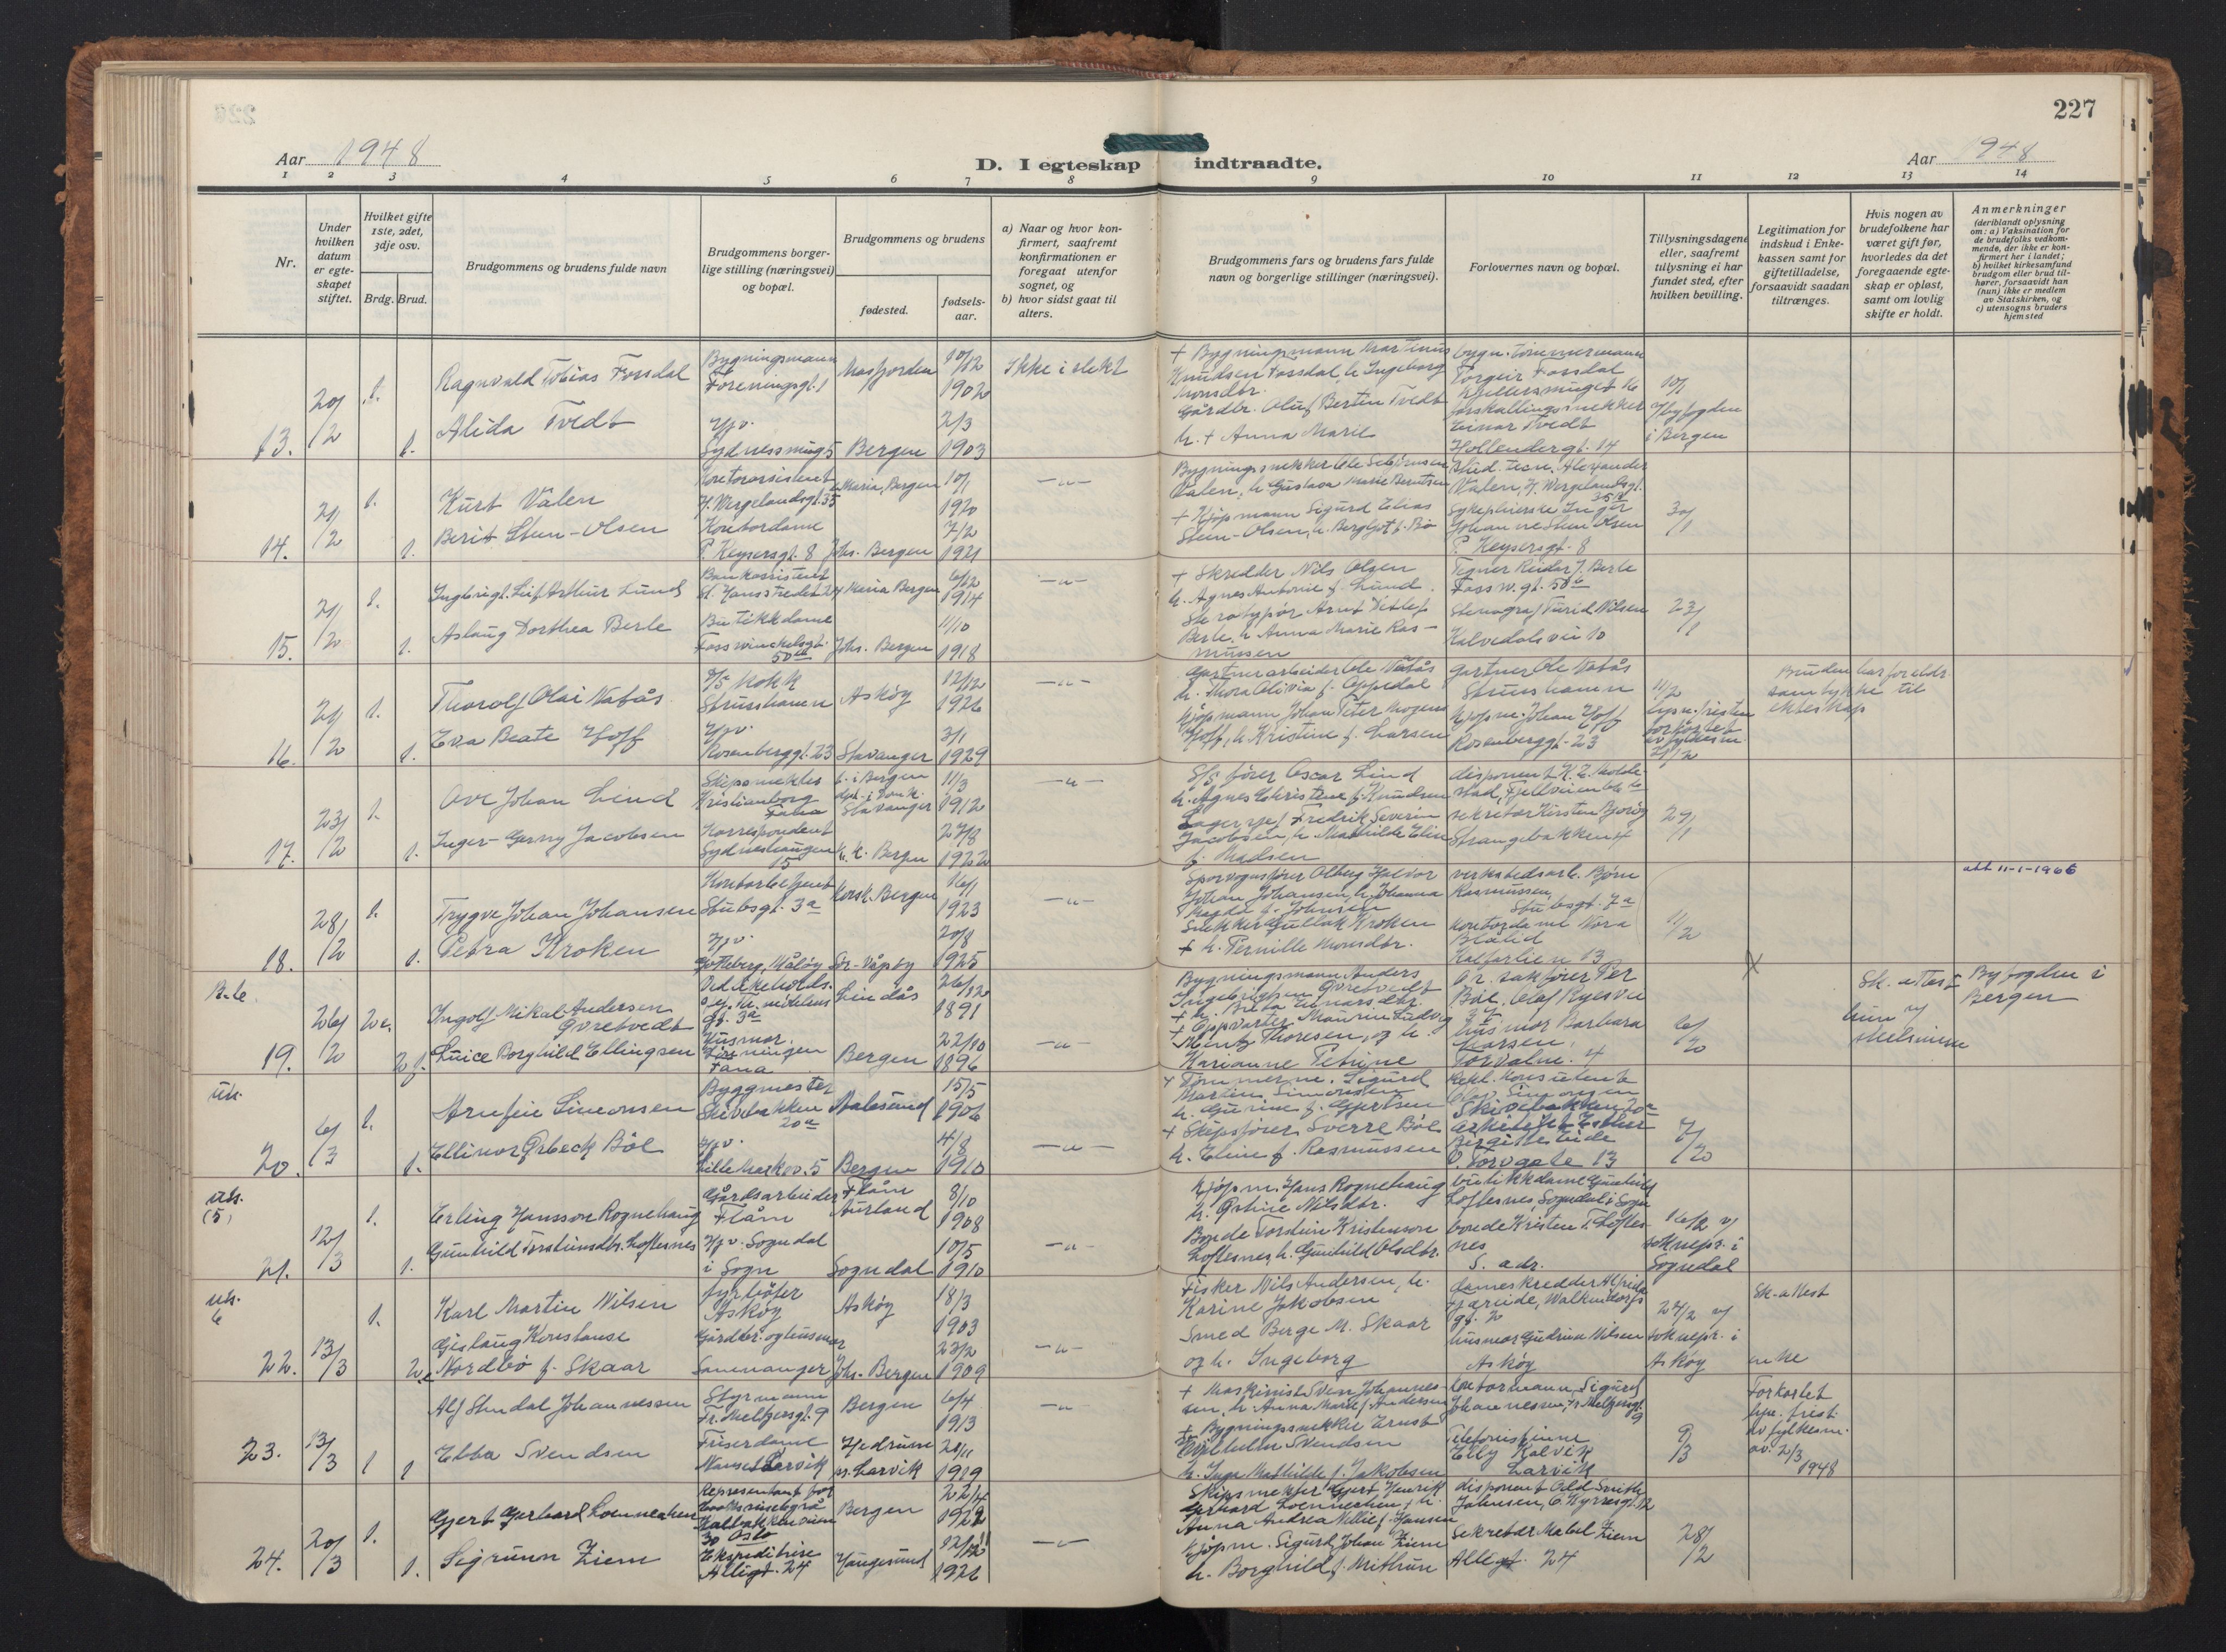 227
Aar 1948
D. I egteskap indtraadte.
Aar 1948
1 2 3 4 5 6 7 8 9 10 11 12 13 14
Nr.
Under hvilken datum er egteskapet stiftet.
Hvilket gifte 1ste, 2det, 3dje osv.
Brdg. Brud.
Brudgommens og brudens fulde navn
Brudgommens borgerlige stilling (næringsvei) og bopæl.
Brudgommens og brudens
fødested.
fødselsaar.
a) Naar og hvor konfirmert, saafremt konfirmationen er foregaat utenfor sognet, og
b) hvor sidst gaat til alters.
Brudgommens fars og brudens fars fulde navn og borgerlige stillinger (næringsvei).
Forlovernes navn og bopæl.
Tillysningsdagene eller, saafremt tillysning ei har fundet sted, efter hvilken bevilling.
Legitimation for indskud i Enkekassen samt for giftetilladelse, forsaavidt saadan tiltrænges.
Hvis nogen av brudefolkene har været gift før, hvorledes da det foregaaende egteskap er opløst, samt om lovlig skifte er holdt.
Anmerkninger
(deriblandt oplysning om: a) Vaksination for de brudefolks vedkommende, der ikke er konfirmert her i landet; b) hvilket kirkesamfund brudgom eller brud tilhører, forsaavidt han (hun) ikke er medlem av Statskirken, og c) utensogns bruders hjemsted
13. 20/2 1. Ragnvald Tobias Fossdal Bygningsmann Foreningsgt. 1 Masfjorden 10/12 1902 Ikke i slekt
+ Bygningsmann Martinus Knudsen Fossdal, h. Ingeborg Monsdtr.
bygn. tømmermann Torgeir Fossdal
10/1 Byfogden i Bergen
1. Alida Tvedt Hjv. Sydnessmug 5 Bergen 2/3 1903
Gårdbr. Oluf Bertin Tvedt h. + Anna Marie
forskallingssnekker Einar Tvedt Hollendergt. 14
14. 21/2 1. Kurt Valen Kontorassistent H. Wergelandsgt. 35 Maria, Bergen 10/1 1920 -"-
Bygningssnekker Ole Valen, h. Gustava Marie Berntsen
Stud. tekn. Alexander Valen, H. Wergelandsgt. 35
30/1
1. Berit Steen-Olsen Kontordame P. Keysersgt. 8 Johs. Bergen 7/2 1921
+ Kjøpmann Sigurd Elias Steen-Olsen, h. Bergljot f. Bø
Sykepleierske Inger Johanne Steen Olsen P. Keysersgt. 8
15. 21/2 1. Ingbrigt Leif Arthur Lund Bankassistent St. Hansstredet 24 Maria Bergen 6/12 1914 -"-
+ Skredder Nils Olsen h. Agnes Antonie f. Lund.
Tegner Reidar J. Berle Fossw.gt. 50b
23/1
1. Aslaug Dorthea Berle Butikkdame Fosswinckelsgt. 50b Johs. Bergen 11/10 1918
Sterotypør Arnt Detlef Berle, h. Anna Marie Rasmussen
Stenograf Turid Nilsen Kalvedalsvei 10
16. 21/2 1. Thorolf Olai Natås D/S Kokk Strusshamn Askøy 12/12 1926 -"-
Gartnerarbeider Ole Natås h. Thora Olivia f. Oppedal
gartner Ole Natås Strusshamn
11/2 lysn.fristen forkortet av fylkesm. 21/2
Bruden har foreldr. samtykke til ekteskap
1. Eva Beate Hoff Hjv. Rosenberggt. 23 Stavanger 3/1 1929
Kjøpmann Johan Peter Mogens Hoff, h. Kristine f. Larsen
kjøpm. Johan Hoff Rosenberggt. 23
17. 23/2 1. Ove Johan Lind Skipsmekler Kristianborg Fana f. i Bergen døpt i Domk. Stavanger 11/3 1912 -"-
S/S fører Oscar Lind h. Agnes Christine f. Knudsen
29/1
1. Inger-Gerny Jacobsen Korrespondent Sydneshaugen 15 K.k. Bergen 27/8 1922
Lagersjef Fredrik Severin Jacobsen, h. Mathilde Elise f. Madsen
sekretær Kirsten Strangebakken 4
18. 28/2 1. Trygve Johan Johansen Kontorbetjent Stubsgt. 3a Korsk. Bergen 16/1 1923 -"-
Sporvognsfører Olberg Halvor Johan Johansen, h. Johanna Magda f. Johnsen
verkstedsarb. Bjørn Rasmussen, Stubsgt. 7a
11/2
att 11-1-1966
1. Petra Kroken Hjv. Gotteberg, Måløy Sør-Vågsøy 20/8 1925
Snekker Gullak Kroken + h. Pernille Monsdtr.
Kontordame Nora Blålid Kalfarlien 13
19. 26/2 2 e. Ingolf Mikal Andersen Qvretvedt Vedlikeholds. gt. 3a Lindås 26/12 1891
Bygningsmann Anders Ingebrigtsen Qvretvedt + h. Brita Einarsdtr.
O.r. sakfører Per Bøe, Olaf Ryesvei 37
6/2
Sk. attest
Byfogden i Bergen
2 f. Luice Borghild Ellingsen Husmor. Fana Bergen 22/10 1896 -"-
+ Oppvarter Maurin Ludvig Mentz Thoresen, og h. Karianne Petrine
husmor Barbara Larsen, Torvalm. 4
un.
20. 6/3 1. Arnfin Simonsen Byggmester Skivebakken 20a Aalesund 15/5 1906
+ Tømmerm. Sigurd Martin Simonsen h. Gurine f. Gjertsen
Olav Simonsen Skivebakken 20a
7/2
1. Ellinor Ørbeck Böe Hjv. Lille Markev. 5 Bergen 4/8 1910 -"-
+ Skipsfører Sverre Böe h. Eline f. Rasmussen
arkitekt Esther V. Torvgate 13
un. (5)
21. 12/3 1. Erling Hansson Rognehaug Gårdsarbeider Flåm Flåm Aurland 8/10 1908
kjøpm. Hans Rognehaug h. Østine Nilsdtr.
butikkdame Gunhild Loftesnes, Sogndal i Sogn
16/2 v/ soknepr. i Sogndal
1. Gunhild Torsteinsdtr. Loftesnes Hjv. Sogndal i Sogn Sogndal 10/5 1910 -"-
Bonde Torstein Kristenson Loftesnes, h. Gunhild Olsdtr.
bonde Kristen T. Loftesnes S. adr.
un. 6
22. 13/3 1. Karl Martin Nilsen fyrbøter Askøy Askøy 18/3 1903
Fisker Nils Andersen, h. Karine Jakobsen
dameskredder Alfrida Fjæreide, Walkendorfs gt. 2
24/2 v/ soknepr. i Askøy
Sk-attest enke
2 e. Gislaug Konstanse Nordbø f. Skaar Gårdbr. og husmor Samnanger Johs. Bergen 23/2 1909 -"-
Smed Berge M. Skaar og h. Ingeborg
husmor Gudrun Nilsen Askøy
23. 13/3 1 Alf Stendal Johannessen Styrmann Fr. Meltzersgt. 9 Bergen 6/4 1913 -"-
+ Maskinist Sven Johannessen, h. Anna Marie f. Andersen
kontormann Sigurd Johannessen, Fr. Meltzersgt. 9
9/3
Forkortet lysn. frist av fylkesm. av. 2/3 1948
1 Ebba Svendsen Friserdame Larvik Hedrum n. Larvik 20/11 1919
+ Bygningssnekker Ernst Wilhelm Svendsen h. Inga Mathilde f. Jakobsen
Telefonistinne Elly Kalvik Larvik
24. 20/3 1. Gjert Gerhard Loennechen Representant for Kalbakkenveien 30 Oslo Bergen 22/4 1922
Skipsmekler Gjert Henrik Gerhard Loennechen, h. Anna Andrea Nellie f. Hansen
disponent Odd Smith Johnsen, O. Kyrresgt. 12
28/2
1. Sigrunn Ziem Ekspeditrise Allégt. 24 Haugesund 12/12 1926 -"-
kjøpm. Sigurd Johan Ziem h. Borghild f. Mithun
Sekretær Mabel Ziem Allégt. 24